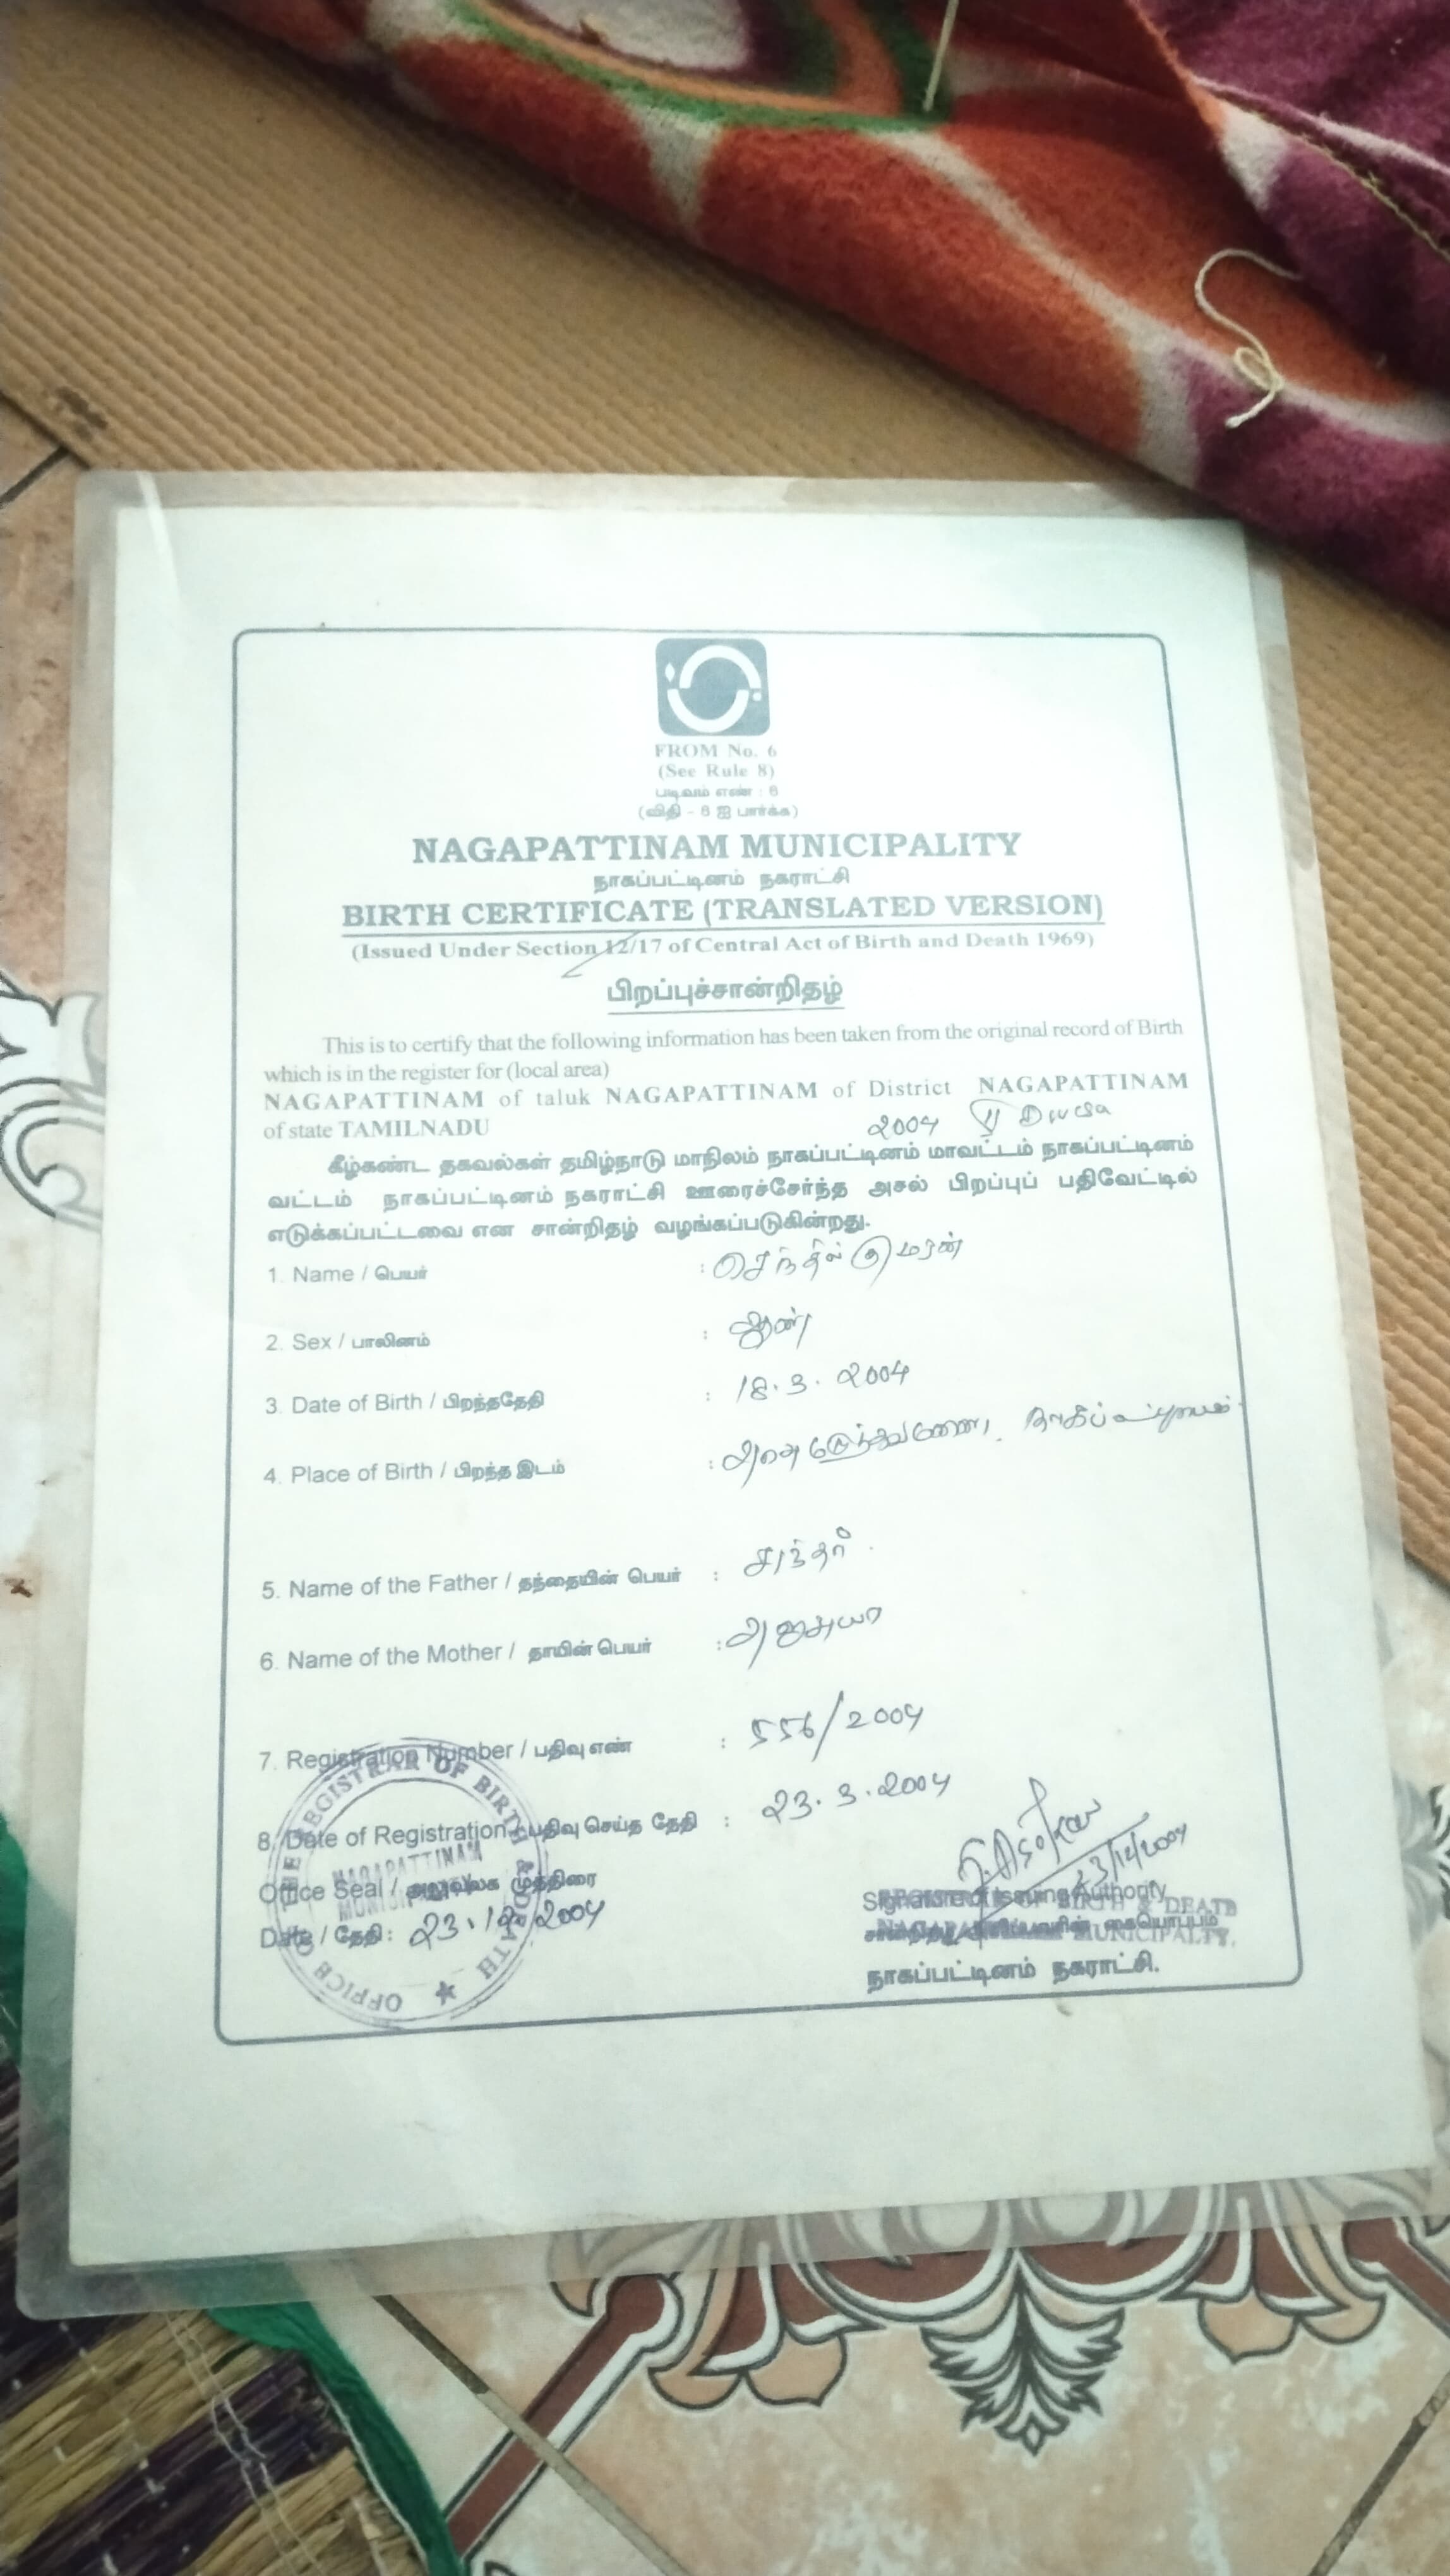 FROM No. 6
(See Rule 8)
படிவம் எண் : 6
(விதி - 8 ஐ பார்க்க)
NAGAPATTINAM MUNICIPALITY
நாகப்பட்டினம் நகராட்சி
BIRTH CERTIFICATE (TRANSLATED VERSION)
(Issued Under Section 12/17 of Central Act of Birth and Death 1969)
பிறப்புச்சான்றிதழ்
This is to certify that the following information has been taken from the original record of Birth
which is in the register for (local area)
NAGAPATTINAM of taluk NAGAPATTINAM of District NAGAPATTINAM
of state TAMILNADU
2004
கீழ்கண்ட தகவல்கள் தமிழ்நாடு மாநிலம் நாகப்பட்டினம் மாவட்டம் நாகப்பட்டினம்
வட்டம் நாகப்பட்டினம் நகராட்சி ஊரைச்சேர்ந்த அசல் பிறப்புப் பதிவேட்டில்
எடுக்கப்பட்டவை என சான்றிதழ் வழங்கப்படுகின்றது.
1. Name / பெயர் : செந்தில் குமரன்
2. Sex / பாலினம் : ஆண்
3. Date of Birth / பிறந்ததேதி : 18.3.2004
4. Place of Birth / பிறந்த இடம் :
5. Name of the Father / தந்தையின் பெயர் :
6. Name of the Mother / தாயின் பெயர் :
7. Registration Number / பதிவு எண் : 556/2004
8. Date of Registration / பதிவு செய்த தேதி : 23.3.2004
Office Seal / அலுவலக முத்திரை
Date / தேதி : 23.12/2004
OFFICE OF THE REGISTRAR OF BIRTH & DEATH
NAGAPATTINAM
23/12/2004
Signature of Issuing Authority
நாகப்பட்டினம் நகராட்சி.